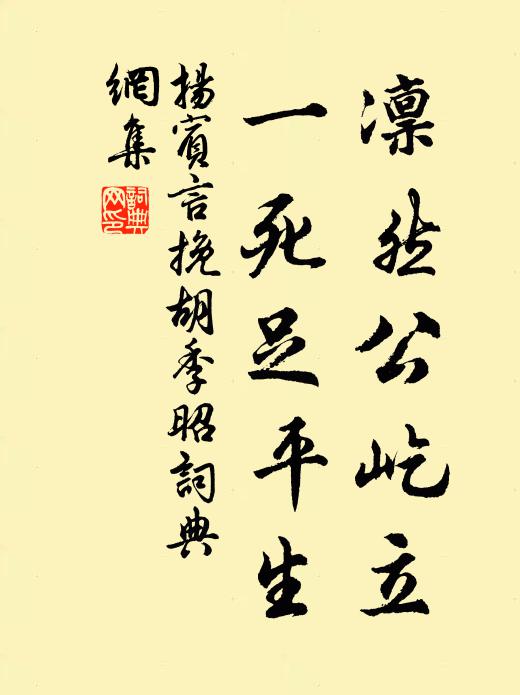 凛然公屹立
一死足平生
揚賓言挽胡季昭詞典
網集
詞典
网印